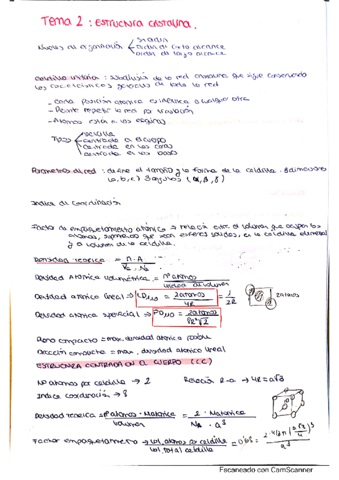 TEMA 2: ESTRUCTURA CRISTALINA.
Niveles de organización
Sin orden
Orden de corto alcance
Orden de largo alcance
Celdilla unitaria: Subdivisión de la red cristalina que sigue conservando
las características generales de toda la red
- Cada posición atómica es idéntica a cualquier otra
- Permite repetir la red por traslación
- Átomos están a las esquinas
Tipos
sencilla
centrada en el cuerpo
centrada en las caras
centrada en las bases
Parámetros de red: define el tamaño y la forma de la celdilla. 3 dimensiones
(a, b, c) 3 ángulos (α, β, γ)
Índice de coordinación
Factor de empaquetamiento atómico → relación entre el volumen que ocupan los
átomos, suponiendo que sean esferas sólidas, en la celdilla elemental
y el volumen de la celdilla.
Densidad teórica = n·A / Vc·NA
Densidad atómica volumétrica = nº átomos / unidad de volumen
Densidad atómica lineal ⇒ = 2 átomos / 4R = 1 / 2R
2 átomos
Densidad atómica superficial ⇒ = 2 átomos / 8R²√2
Plano compacto = max. densidad atómica posible
Dirección compacta = max. densidad atómica lineal
ESTRUCTURA CENTRADA EN EL CUERPO (CC)
Nº átomos por celdilla → 2 Relación R-a → 4R = a√3
Índice coordinación → 8
Densidad teórica = nº átomos · Matómica / Volumen = 2 · Matómica / NA · a³
Factor empaquetamiento → vol. átomos por celdilla / vol. total celdilla = 0'68 =
Escaneado con CamScanner